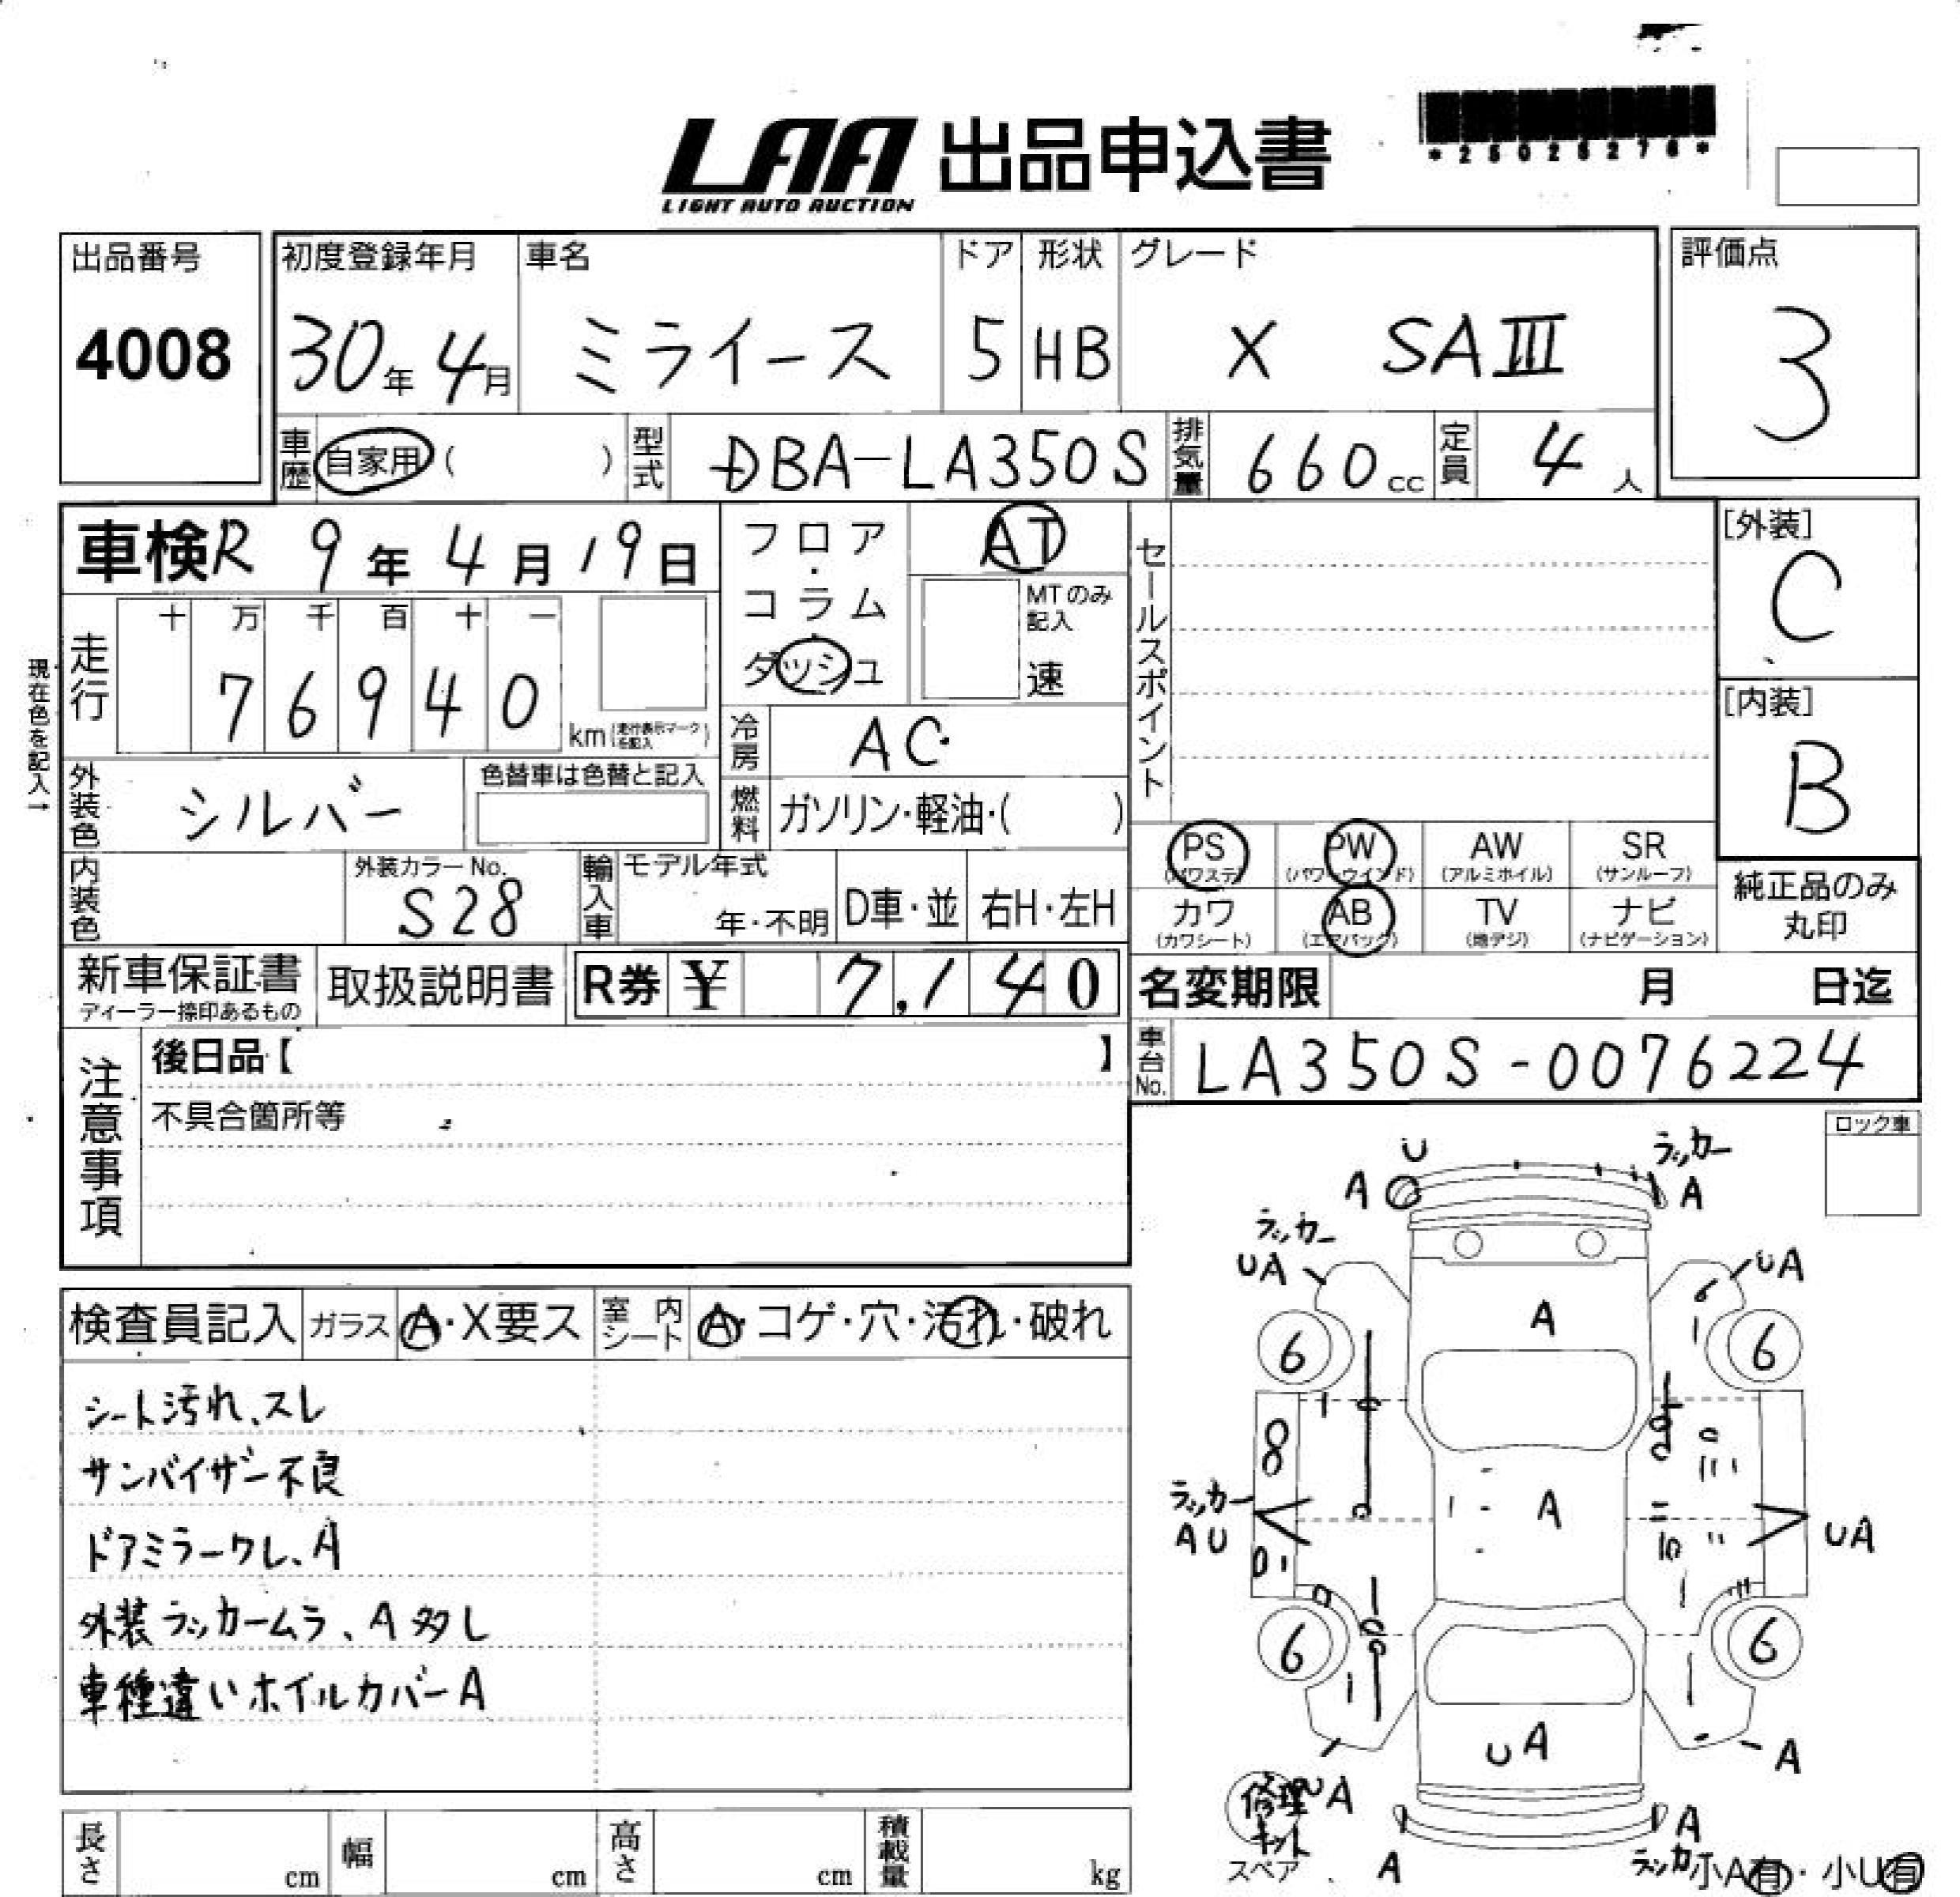 LAA 出品申込書
LIGHT AUTO AUCTION
*25025276*
出品番号
4008
初度登録年月
30年 4月
車名
ミライース
ドア
5
形状
HB
グレード
X SAⅢ
評価点
3
車歴 自家用 ( )
型式 DBA-LA350S
排気量 660 cc
定員 4 人
車検 R 9年 4月 19日
フロア・コラム・ダッシュ
AT
MTのみ記入
速
セールスポイント
[外装]
C
[内装]
B
現在色を記入→
走行
十 万 千 百 十 一
7 6 9 4 0
km (走行表示マークを記入)
冷房 AC
外装色 シルバー
色替車は色替と記入
燃料 ガソリン・軽油・( )
内装色
外装カラーNo.
S28
輸入車
モデル年式
年・不明
D車・並
右H・左H
PS (パワステ)
PW (パワーウインド)
AW (アルミホイル)
SR (サンルーフ)
カワ (カワシート)
AB (エアバック)
TV (地デジ)
ナビ (ナビゲーション)
純正品のみ
丸印
新車保証書
ディーラー捺印あるもの
取扱説明書
R券 ¥ 7,140
名変期限 月 日迄
注意事項
後日品【 】
不具合箇所等
車台No. LA350S-0076224
ロック車
検査員記入
ガラス A・X要ス
室内シート A・コゲ・穴・汚れ・破れ
シート汚れ、スレ
サンバイザー不良
ドアミラークレ、A
外装ラッカームラ、A多し
車種違いホイルカバーA
U
ラッカー
A
A
ラッカー
UA
UA
A
6
6
8
ラッカー
AU
A
UA
6
6
UA
A
修理キット
UA
スペア
A
A
ラッカー
小A有・小U有
長さ cm
幅 cm
高さ cm
積載量 kg